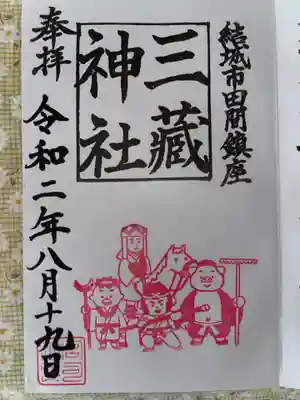 結城市田間鎮座
三蔵
神社
奉拝
令和二年八月十九日